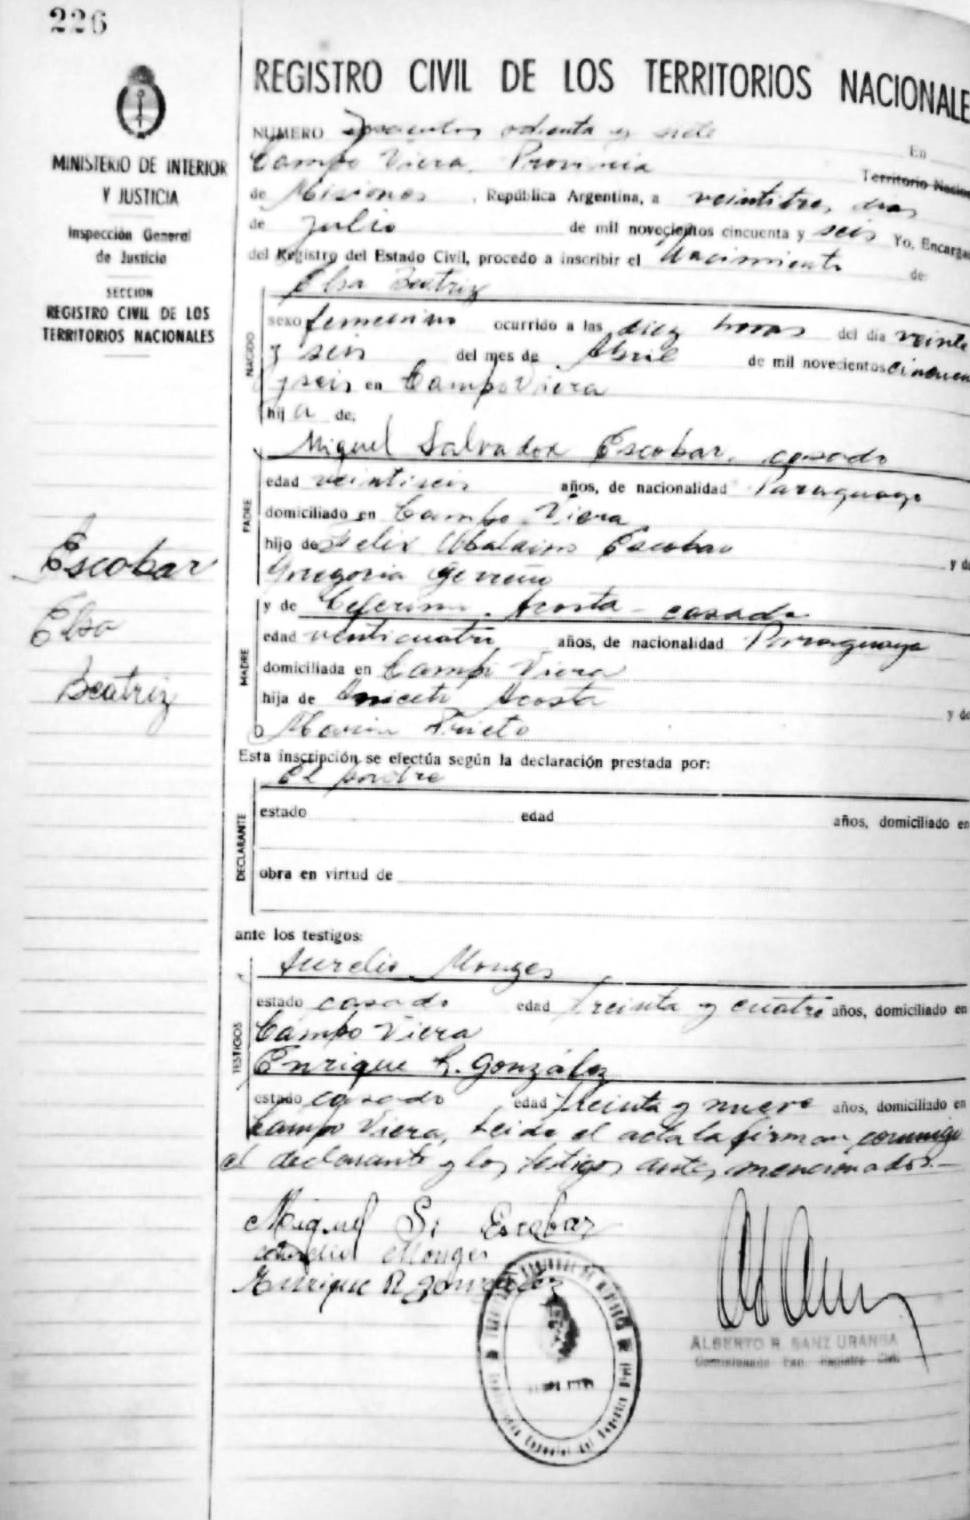 226
MINISTERIO DE INTERIOR
Y JUSTICIA
Inspección General
de Justicia
SECCION
REGISTRO CIVIL DE LOS
TERRITORIOS NACIONALES
Escobar
Elsa
Beatriz
REGISTRO CIVIL DE LOS TERRITORIOS NACIONALE
NUMERO Doscientos ochenta y siete En
Campo Viera, Provincia Territorio Nacion
de Misiones, República Argentina, a veintitres dias
de Julio de mil novecientos cincuenta y seis Yo, Encarga
del Registro del Estado Civil, procedo a inscribir el Nacimiento de:
Elsa Beatriz
NACIDO
sexo femenino ocurrido a las diez horas del día veinte
y seis del mes de Abril de mil novecientos cincuen
y seis en Campo Viera
hija de:
Miguel Salvador Escobar, casado
PADRE
edad veintiseis años, de nacionalidad Paraguayo
domiciliado en Campo Viera
hijo de Felix Ubaldino Escobar y de
Gregoria
y de Ceferina Acosta - casada
MADRE
edad venticuatro años, de nacionalidad Paraguaya
domiciliada en Campo Viera
hija de Aniceto Acosta y de
Maria Prieto
Esta inscripción se efectúa según la declaración prestada por:
El padre
DECLARANTE
estado edad años, domiciliado en
obra en virtud de
ante los testigos:
Aurelio Monges
TESTIGOS
estado casado edad treinta y cuatro años, domiciliado en
Campo Viera
Enrique R. González
estado casado edad treinta y nueve años, domiciliado en
Campo Viera, Leida el acta la firman conmigo
el declarante y los testigos antes mencionados.—
Miguel S. Escobar
Aurelio Monges
Enrique R. González
ALBERTO R. SANZ URANGA